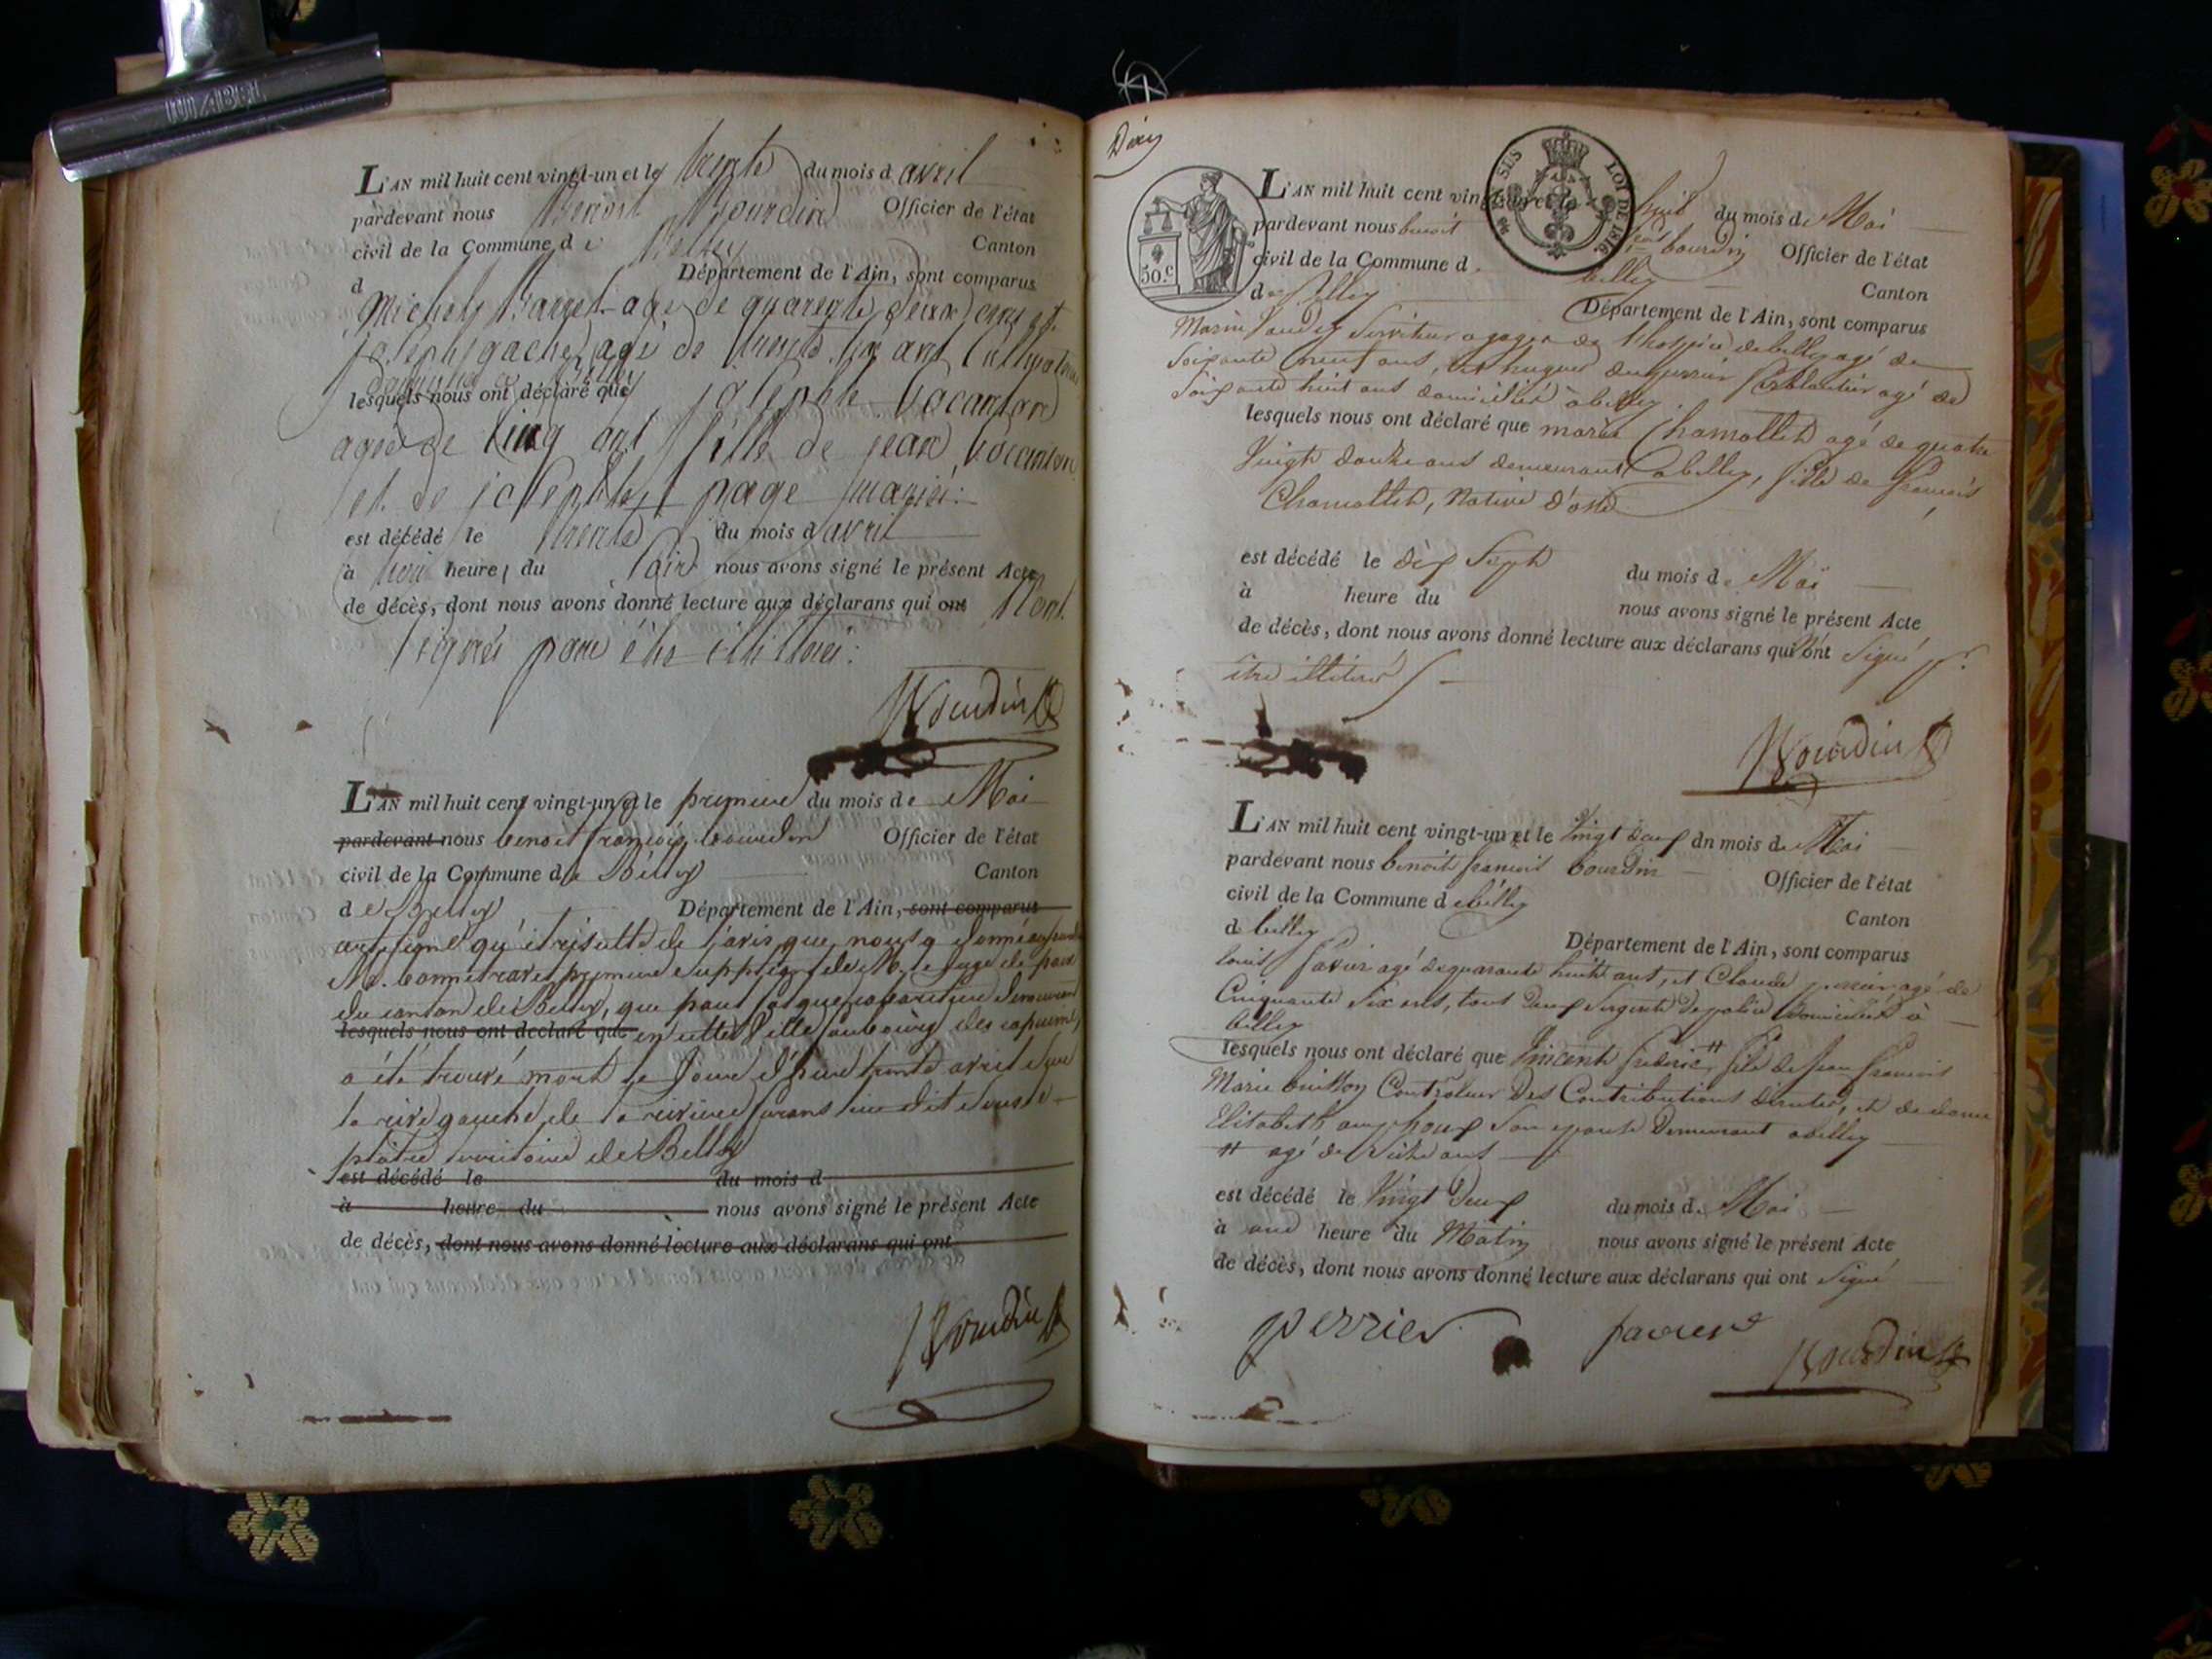 L'AN mil huit cent vingt-un et le trente du mois d avril
pardevant nous Benoit Bourdin Officier de l'état
civil de la Commune de Belley Canton
d Département de l'Ain, sont comparus
Michel agé de quarente deux ans et
joseph gache agé de trente six ans Cultivateurs
domiciliés a Belley
lesquels nous ont déclaré que josephte Vocanson
agée de cinq ans fille de jean Vocanson
et de josephte page mariés
est décédé le trente du mois d avril
à heure du soir nous avons signé le présent Acte
de décès, dont nous avons donné lecture aux déclarans qui ont Nont
signés pour etre illitérés
Bourdin
L'AN mil huit cent vingt-un et le premier du mois de Mai
pardevant nous benoit françois bourdin Officier de l'état
civil de la Commune de Belley Canton
de Belley Département de l'Ain, sont comparus
qu'il résulte de l'avis que nous a donné
M. premier suppléant de M. le juge de paix
du canton de Belley, que demeurant
lesquels nous ont déclaré que en cette Ville faubourg des capucins,
a été trouvé mort le jour d'hier trente avril sur
la rive gauche de la rivière furans lieu dit sous le
platre territoire de Belley
est décédé le du mois d
à heure du nous avons signé le présent Acte
de décès, dont nous avons donné lecture aux déclarans qui ont
Bourdin
50.c
SES LOI DE 1816.
L'AN mil huit cent vingt-un et le huit du mois de Mai
pardevant nous benoit bourdin Officier de l'état
civil de la Commune d belley Canton
de Belley Département de l'Ain, sont comparus
Serviteur a gages de l'hospice de belley agé de
soixante neuf ans, et hugues duperrier ferblantier agé de
soixante huit ans domiciliés à belley
lesquels nous ont déclaré que marie Chamollet agé de quatre
Vingt douze ans demeurant a belley, fille de françois
Chamollet, Native d'oste
est décédé le dix sept du mois de Mai
à heure du nous avons signé le présent Acte
de décès, dont nous avons donné lecture aux déclarans qui n'ont signé pr.
être illitéré
Bourdin
L'AN mil huit cent vingt-un et le Vingt deux dn mois de Mai
pardevant nous benoit francois bourdin Officier de l'état
civil de la Commune de belley Canton
d belley Département de l'Ain, sont comparus
louis favier agé de quarante huit ans, et Claude perrier agé de
Cinquante six ans, tous deux sergents de police domiciliés à
belley
lesquels nous ont déclaré que Vincent frédéric # fils de Jean francois
Marie Controleur Des Contributions directes, et de dame
Elisabeth son epouse Demeurant a belley
# agé de huit ans
est décédé le Vingt Deux du mois de Mai
à heure du Matin nous avons signé le présent Acte
de décès, dont nous avons donné lecture aux déclarans qui ont signé
perrier favier
Bourdin